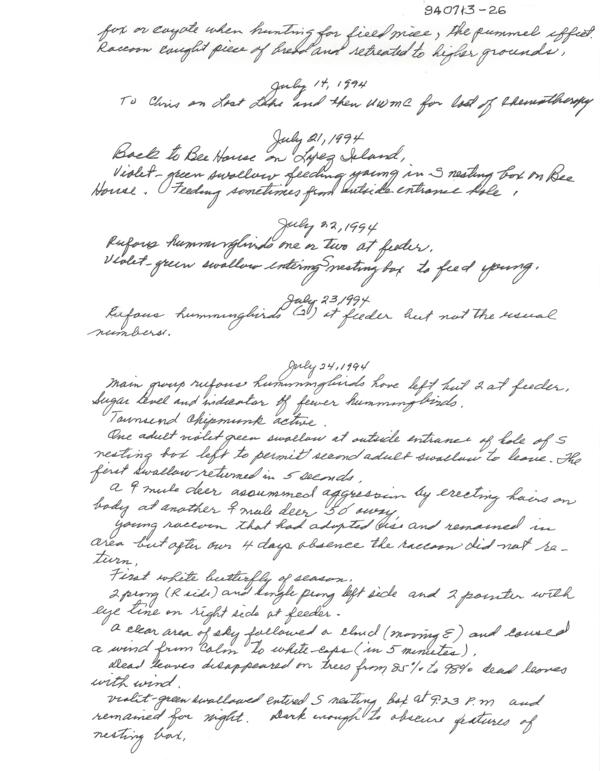 940713-26
fox or coyote when hunting for field mice, the pummel effect.
Raccoon caught piece of bread and retreated to higher grounds.
July 14, 1994
To Chris on Lost Lake and then UWMC for last of chemotherapy
July 21, 1994
Back to Bee House on Lopez Island,
Violet-green swallow feeding young in S nesting box on Bee
House. Feeding sometimes from outside entrance hole.
July 22, 1994
Rufous hummingbirds one or two at feeder.
Violet-green swallow entering S nesting box to feed young.
July 23, 1994
Rufous hummingbirds (2) at feeder but not the usual
numbers.
July 24, 1994
Main group rufous hummingbirds have left but 2 at feeder.
Sugar level and indicator of fewer hummingbirds.
Townsend chipmunk active.
One adult violet green swallow at outside entrance of hole of S
nesting box left to permit second adult swallow to leave. The
first swallow returned in 5 seconds.
A ♀ mule deer assummed aggression by erecting hairs on
body at another ♀ mule deer 50' away.
Young raccoon that had adopted us and remained in
area but after our 4 days absence the raccoon did not re-
turn.
First white butterfly of season.
2 prong (R side) and single prong left side and 2 pointer with
eye tine on right side at feeder.
A clear area of sky followed a cloud (moving E) and caused
a wind from calm to white-caps (in 5 minutes).
Dead leaves disappeared on trees from 85% to 98% dead leaves
with wind.
Violet-green swallowed entered S nesting box at 9:23 P.M and
remained for night. Dark enough to obscure features of
nesting box.